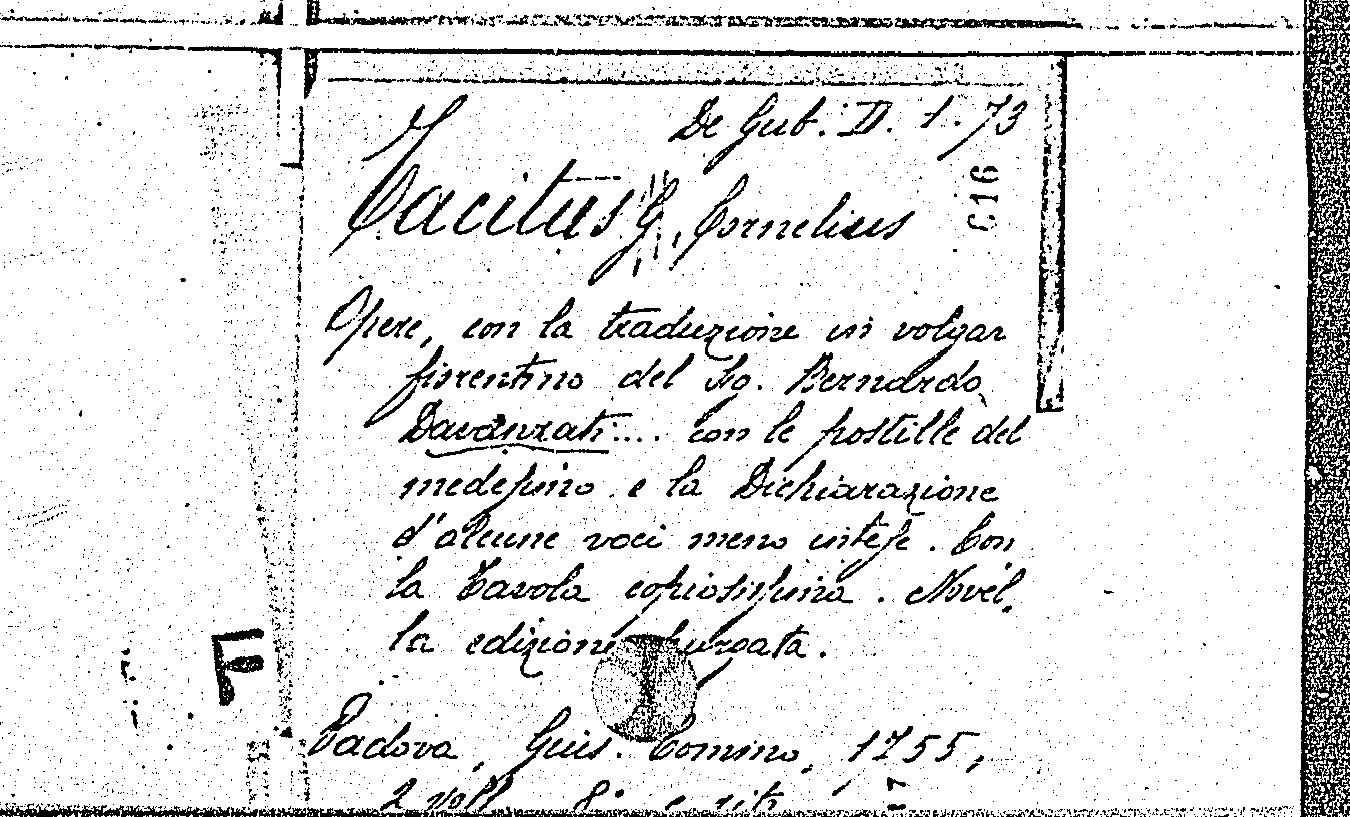 De Gub. II. 1. 73
C16
Tacitus, Cornelius
Opere, con la traduzione in volgar
fiorentino del Sig. Bernardo
Davanzati.... con le postille del
medesimo e la Dichiarazione
d'alcune voci meno intese. Con
la Tavola copiosissima. Novel-
la edizione purgata.
F
Padova, Gius. Comino, 1755,
2 voll. 8°